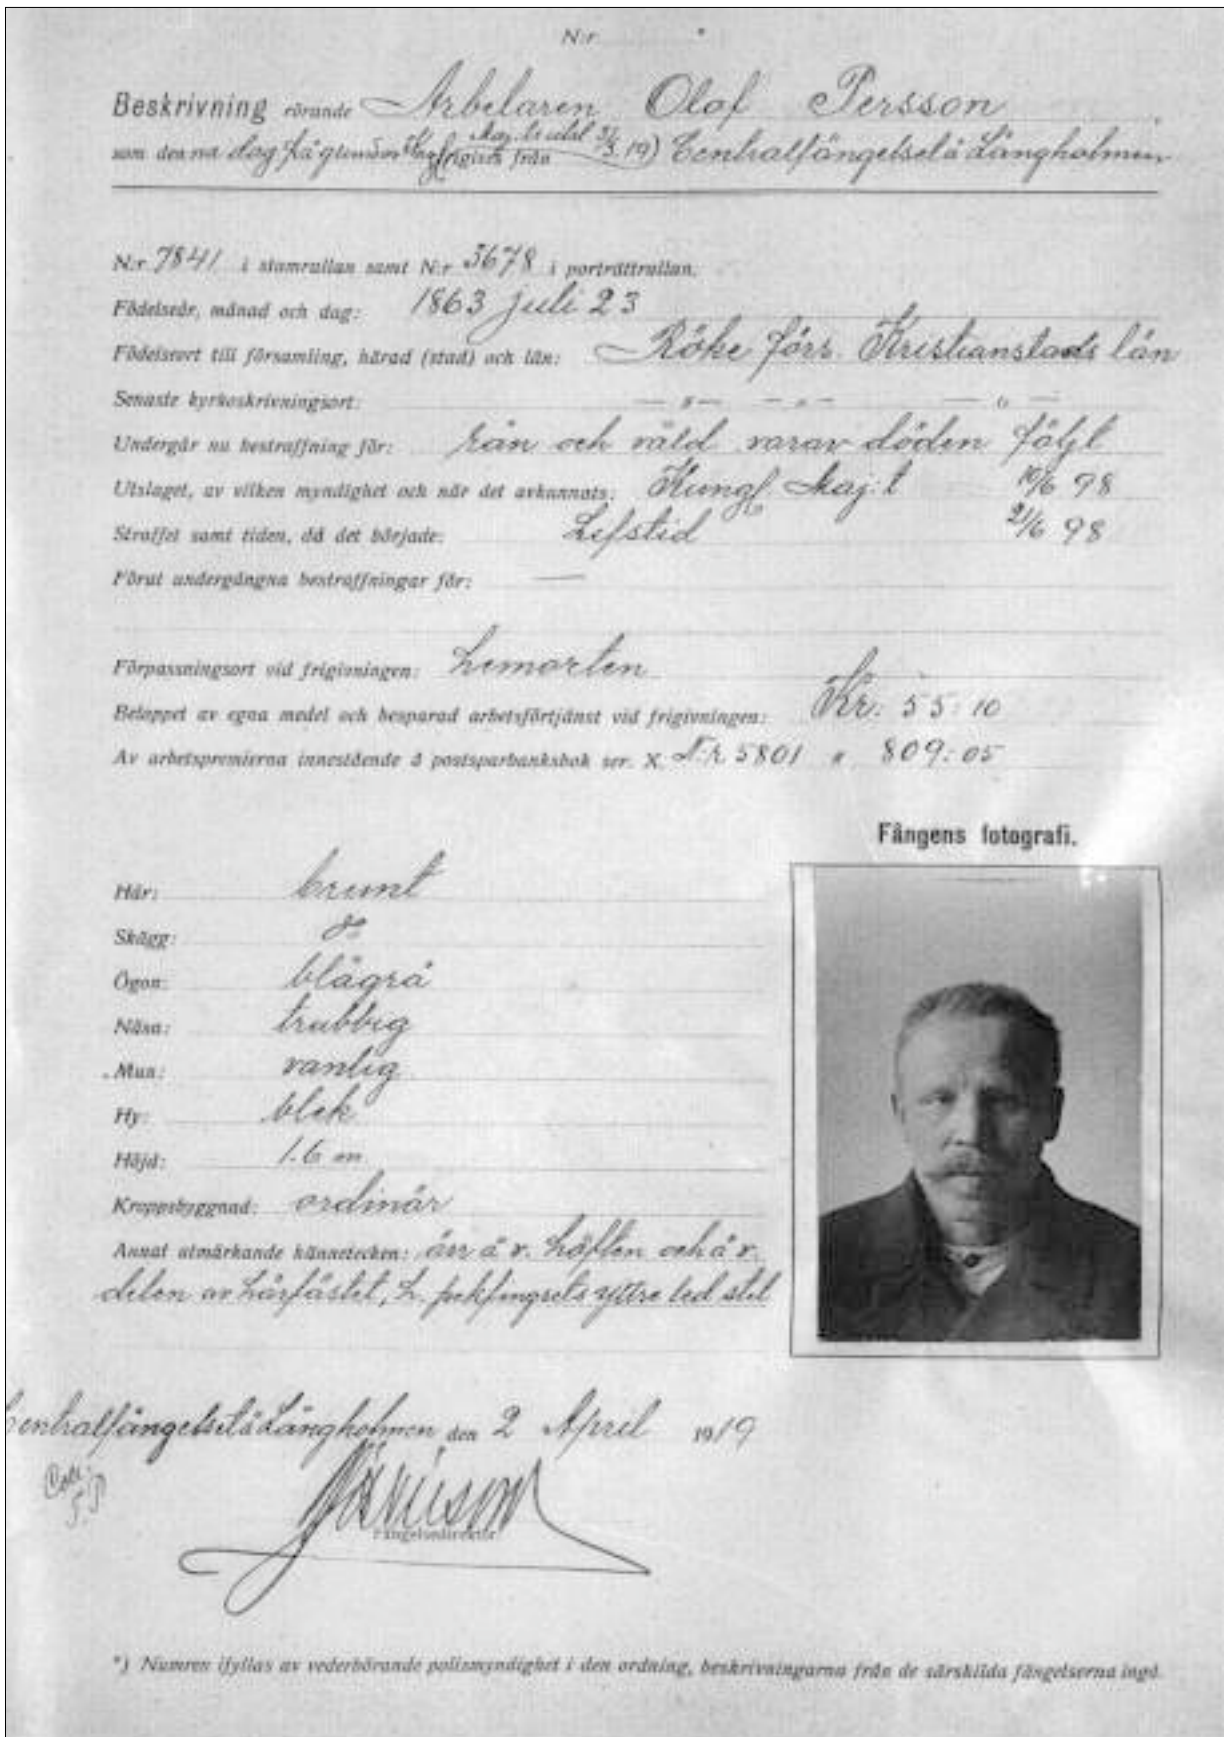 N:r *
Beskrivning rörande Arbetaren Olof Persson
som denna dag på grund av Kungl. Maj:ts utsl 31/3 19) frigives från Centralfängelset å Långholmen
N:r 7841 i stamrullan samt N:r 3678 i porträttrullan.
Födelseår, månad och dag: 1863 juli 23
Födelseort till församling, härad (stad) och län: Röke förs. Kristianstads län
Senaste kyrkoskrivningsort: — " — — " — — " —
Undergår nu bestraffning för: rån och våld varav döden följt
Utslaget, av vilken myndighet och när det avkunnats: Kungl. Maj:t 10/6 98
Straffet samt tiden, då det började: Lifstid 21/6 98
Förut undergångna bestraffningar för: —
Förpassningsort vid frigivningen:
Beloppet av egna medel och besparad arbetsförtjänst vid frigivningen: Kr. 55:10
Av arbetspremierna innestående å postsparbanksbok ser. X. N:r 5801 " 809:05
Fångens fotografi.
Hår: brunt
Skägg: d:o
Ögon: blågrå
Näsa: trubbig
Mun: vanlig
Hy: blek
Höjd: 1.6 m
Kroppsbyggnad: ordinär
Annat utmärkande kännetecken: ärr å v. höften och å v.
delen av hårfästet, h. pekfingrets yttre led stel
Centralfängelset å Långholmen den 2 April 1919
Fängelsedirektör
*) Numren ifyllas av vederbörande polismyndighet i den ordning, beskrivningarna från de särskilda fängelserna ingå.